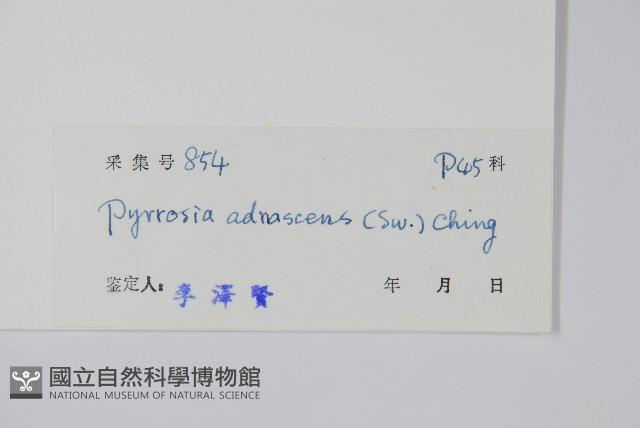 采集号 854 P45 科
Pyrrosia adnascens (Sw.) Ching
鉴定人: 李澤賢 年 月 日
國立自然科學博物館
NATIONAL MUSEUM OF NATURAL SCIENCE